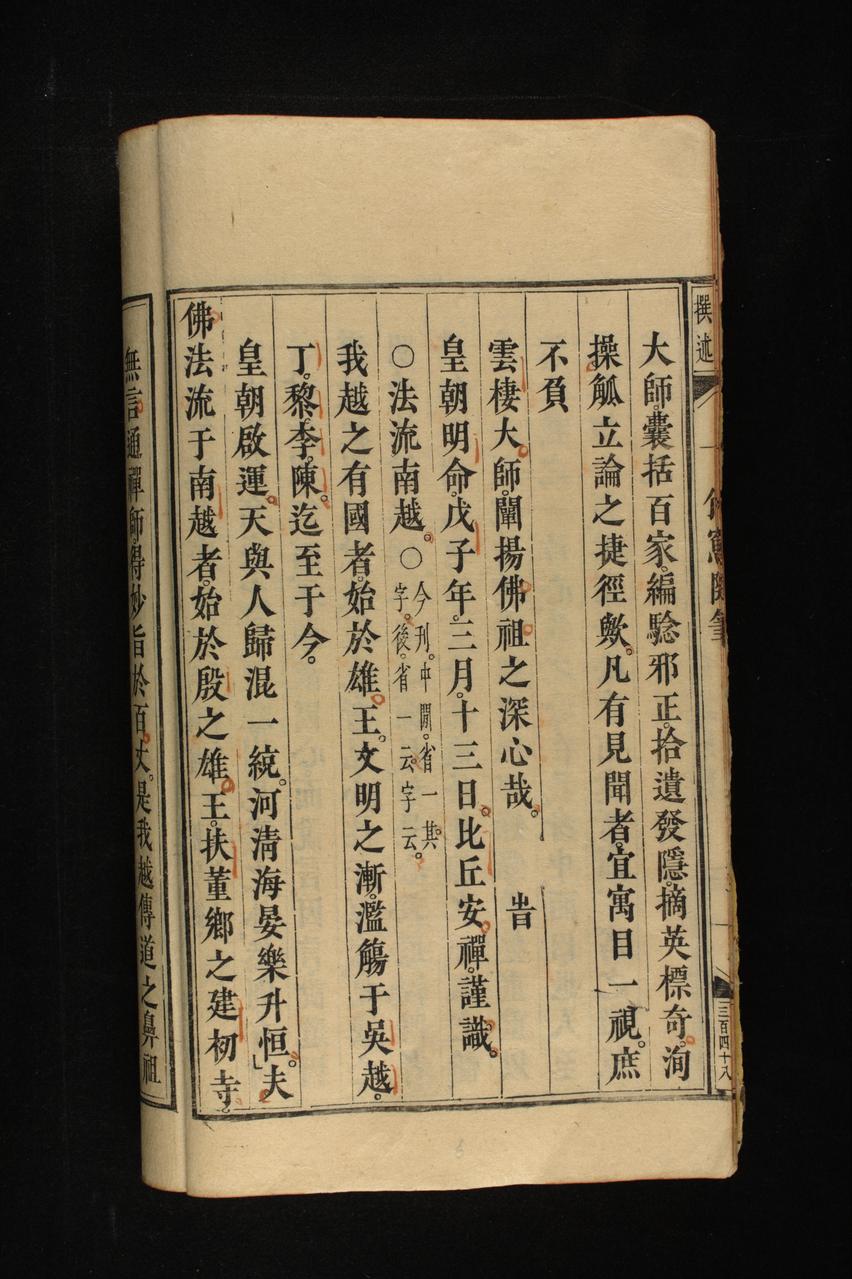 撰述
竹窻隨筆
三百四十八
大師。囊括百家。編騐邪正。拾遺發隱。摘英標奇。洵
操觚立論之捷徑歟。凡有見聞者。宜寓目一視。庶
不負
雲棲大師。闡揚佛祖之深心哉。 旹
皇朝明命。戊子年。三月。十三日。比丘安。禪。謹識。
〇法流南越。〇今刊。中間。省一其。字。後。省一云。字云。
我越之有國者。始於雄。王。文明之漸。濫觴于吳越。
丁。黎。李。陳。迄至于今。
皇朝啟運。天與人歸混一統。河清海晏樂升恒。夫
佛法流于南越者。始於殷之雄。王。扶董鄉之建初寺。
無言通禪師。得妙旨於百丈。是我越傳道之鼻祖